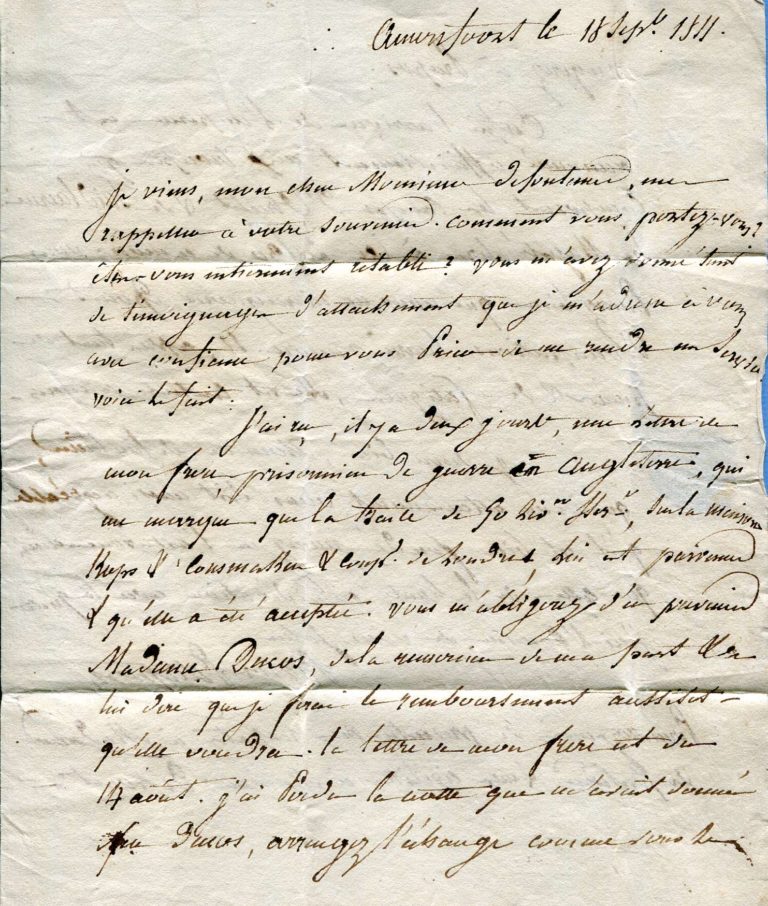 Amersfoort le 18 Sepbr 1811.
je viens, mon cher Monsieur defontaine, me
rappeller à votre souvenir. comment vous portez-vous?
êtes-vous entierement rétabli? vous m'avez donné tant
de témoignages d'attachement que je m'adresse à vous
avec confiance pour vous Prier de me rendre un Service
voici le fait.
J'ai reçu, il y a deux jours, une lettre de
mon frere prisonnier de guerre en angleterre, qui
me marque que la traite de 50 Liv. Ster., Sur la maison
& Comp. de Londres, lui est parvenue
& qu'elle a été acceptée. vous m'obligerez d'en prevenir
Madame Ducos, de la remercier de ma part & de
lui dire que je ferai le remboursement aussitot
qu'elle voudra. la lettre de mon frere est du
14 août. j'ai Perdu la notte que m'avait donné
Ducos, arrangez l'échange comme vous le